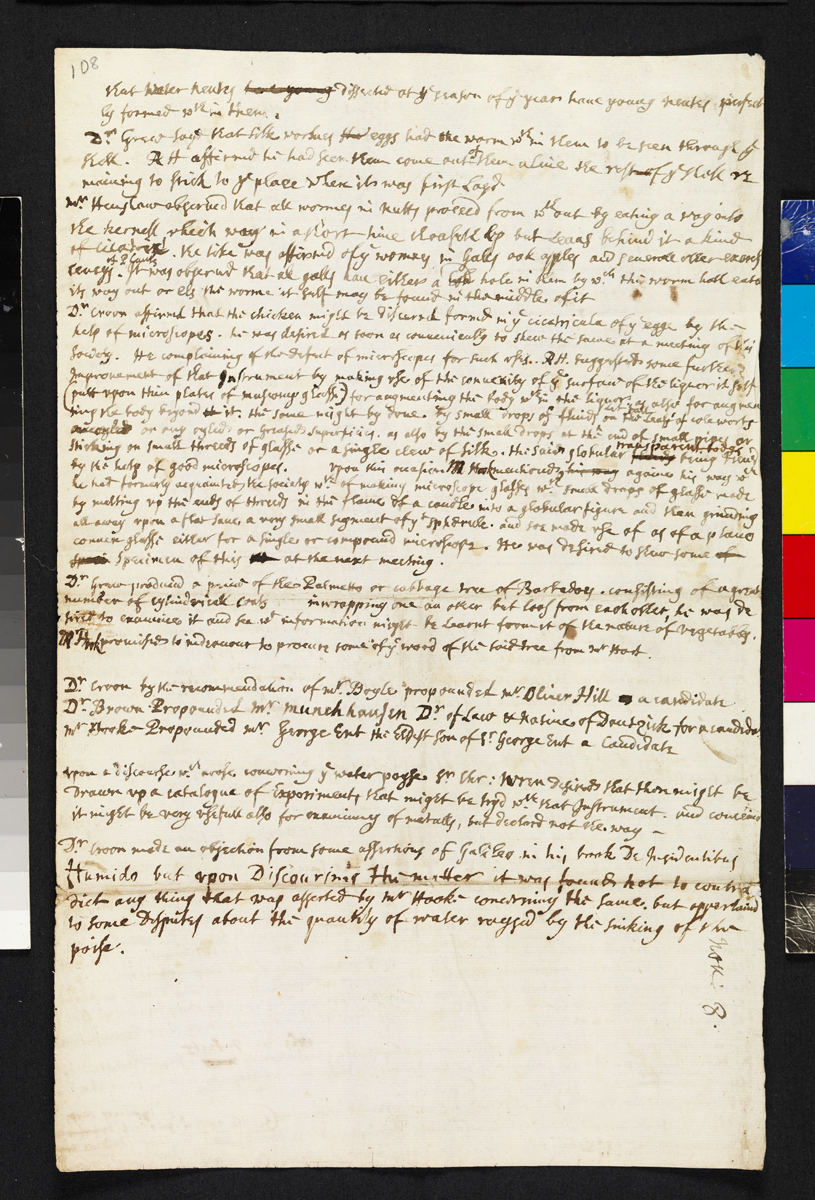 108
that water neutes have young dissected at ye season of ye yeare have young neutes perfect
ly formed wth in them.
Dr Grew sayd that silk wormes the eggs had the worm wth in them to be seen through ye
shell. RH affirmed he had seen them come out of them alive the rest of ye shell re
maining to stick to ye place where it was first layd
Mr Henshaw observed that all wormes in nutts proceed from wthout by eating a way into
the kernell which way in a short time closeth up but leaus behind it a kind
of cicatrix. the like was affirmd of ye wormes in galls oak apples and severall other
of Plants It was observed that all galls have either a hole in them by wch the worm hath eaten
its way out or els the worme it self may be found in the middle of it
Dr Croon affirmd that the chicken might be discernd formd in ye cicatricula of ye egge by the
help of microscopes. he was desired as soon as conveniently to shew the same at a meeting of the
Society. He complaining of the defect of microscopes for such uses. RH. suggested some further
Improvement of that Instrument by making use of the convexity of ye surface of the liquor it self
(putt upon thin plates of muscovy glasse) for augmenting the body wthin the liquor, as also for augmen
ting the body beyond it; the same might by done. By small drops of fluids on the leafs of coleworts
or any oyled or greased superficies. as also by the small drops at the end of small pipes or
sticking on small threeds of glasse or a single clew of silke. the said globular transparent bodys being
by the help of good microscopes. upon this occasion Mr Hook mentioned againe his way wch
he had formerly acquainted the society wth of making microscope glasses wth small drops of glasse made
by melting up the ends of threeds in the flame of a candle into a globular figure and then grinding
all away upon a flat save a very small segment of ye spherule. and soe made use of as of a plano
convex glasse either for a single or compound microscope. He was desired to shew some
specimen of this at the next meeting.
Dr Grew produced a peice of the Palmetto or cabbage tree of Barbadoes. consisting of a great
number of cylindricall coats inwrapping one an other but loos from each other, he was de
sired to examine it and see wt information might be learnt from it of the nature of vegetables.
Mr Hook promised to indeavour to procure some of ye wood of the said tree from Mr Hout.
Dr Croon by the recommendation of Mr. Boyle propounded Mr Oliver Hill a candidate
Dr Brown Propounded Mr Munchhausen Dr of Law & Native of Dantzick for a candidate
Mr Hooke Propounded Mr George Ent the Eldest son of Sr George Ent a Candidate
upon a discourse wch arose concerning ye water poyse Sr Chr: Wren desired that there might be
Drawn up a catalogue of Experiments that might be tryd wth that Instrument. and conceived
it might be very usefull also for examining of metalls, but declard not the way –
Dr Croon made an objection from some assertions of Galileo in his book De Insidentibus
Humido but upon Discoursing the matter it was found not to contra
dict any thing that was asserted by Mr Hooke concerning the same. but appertaind
to some Disputes about the quantity of water raysed by the sinking of the
poise.